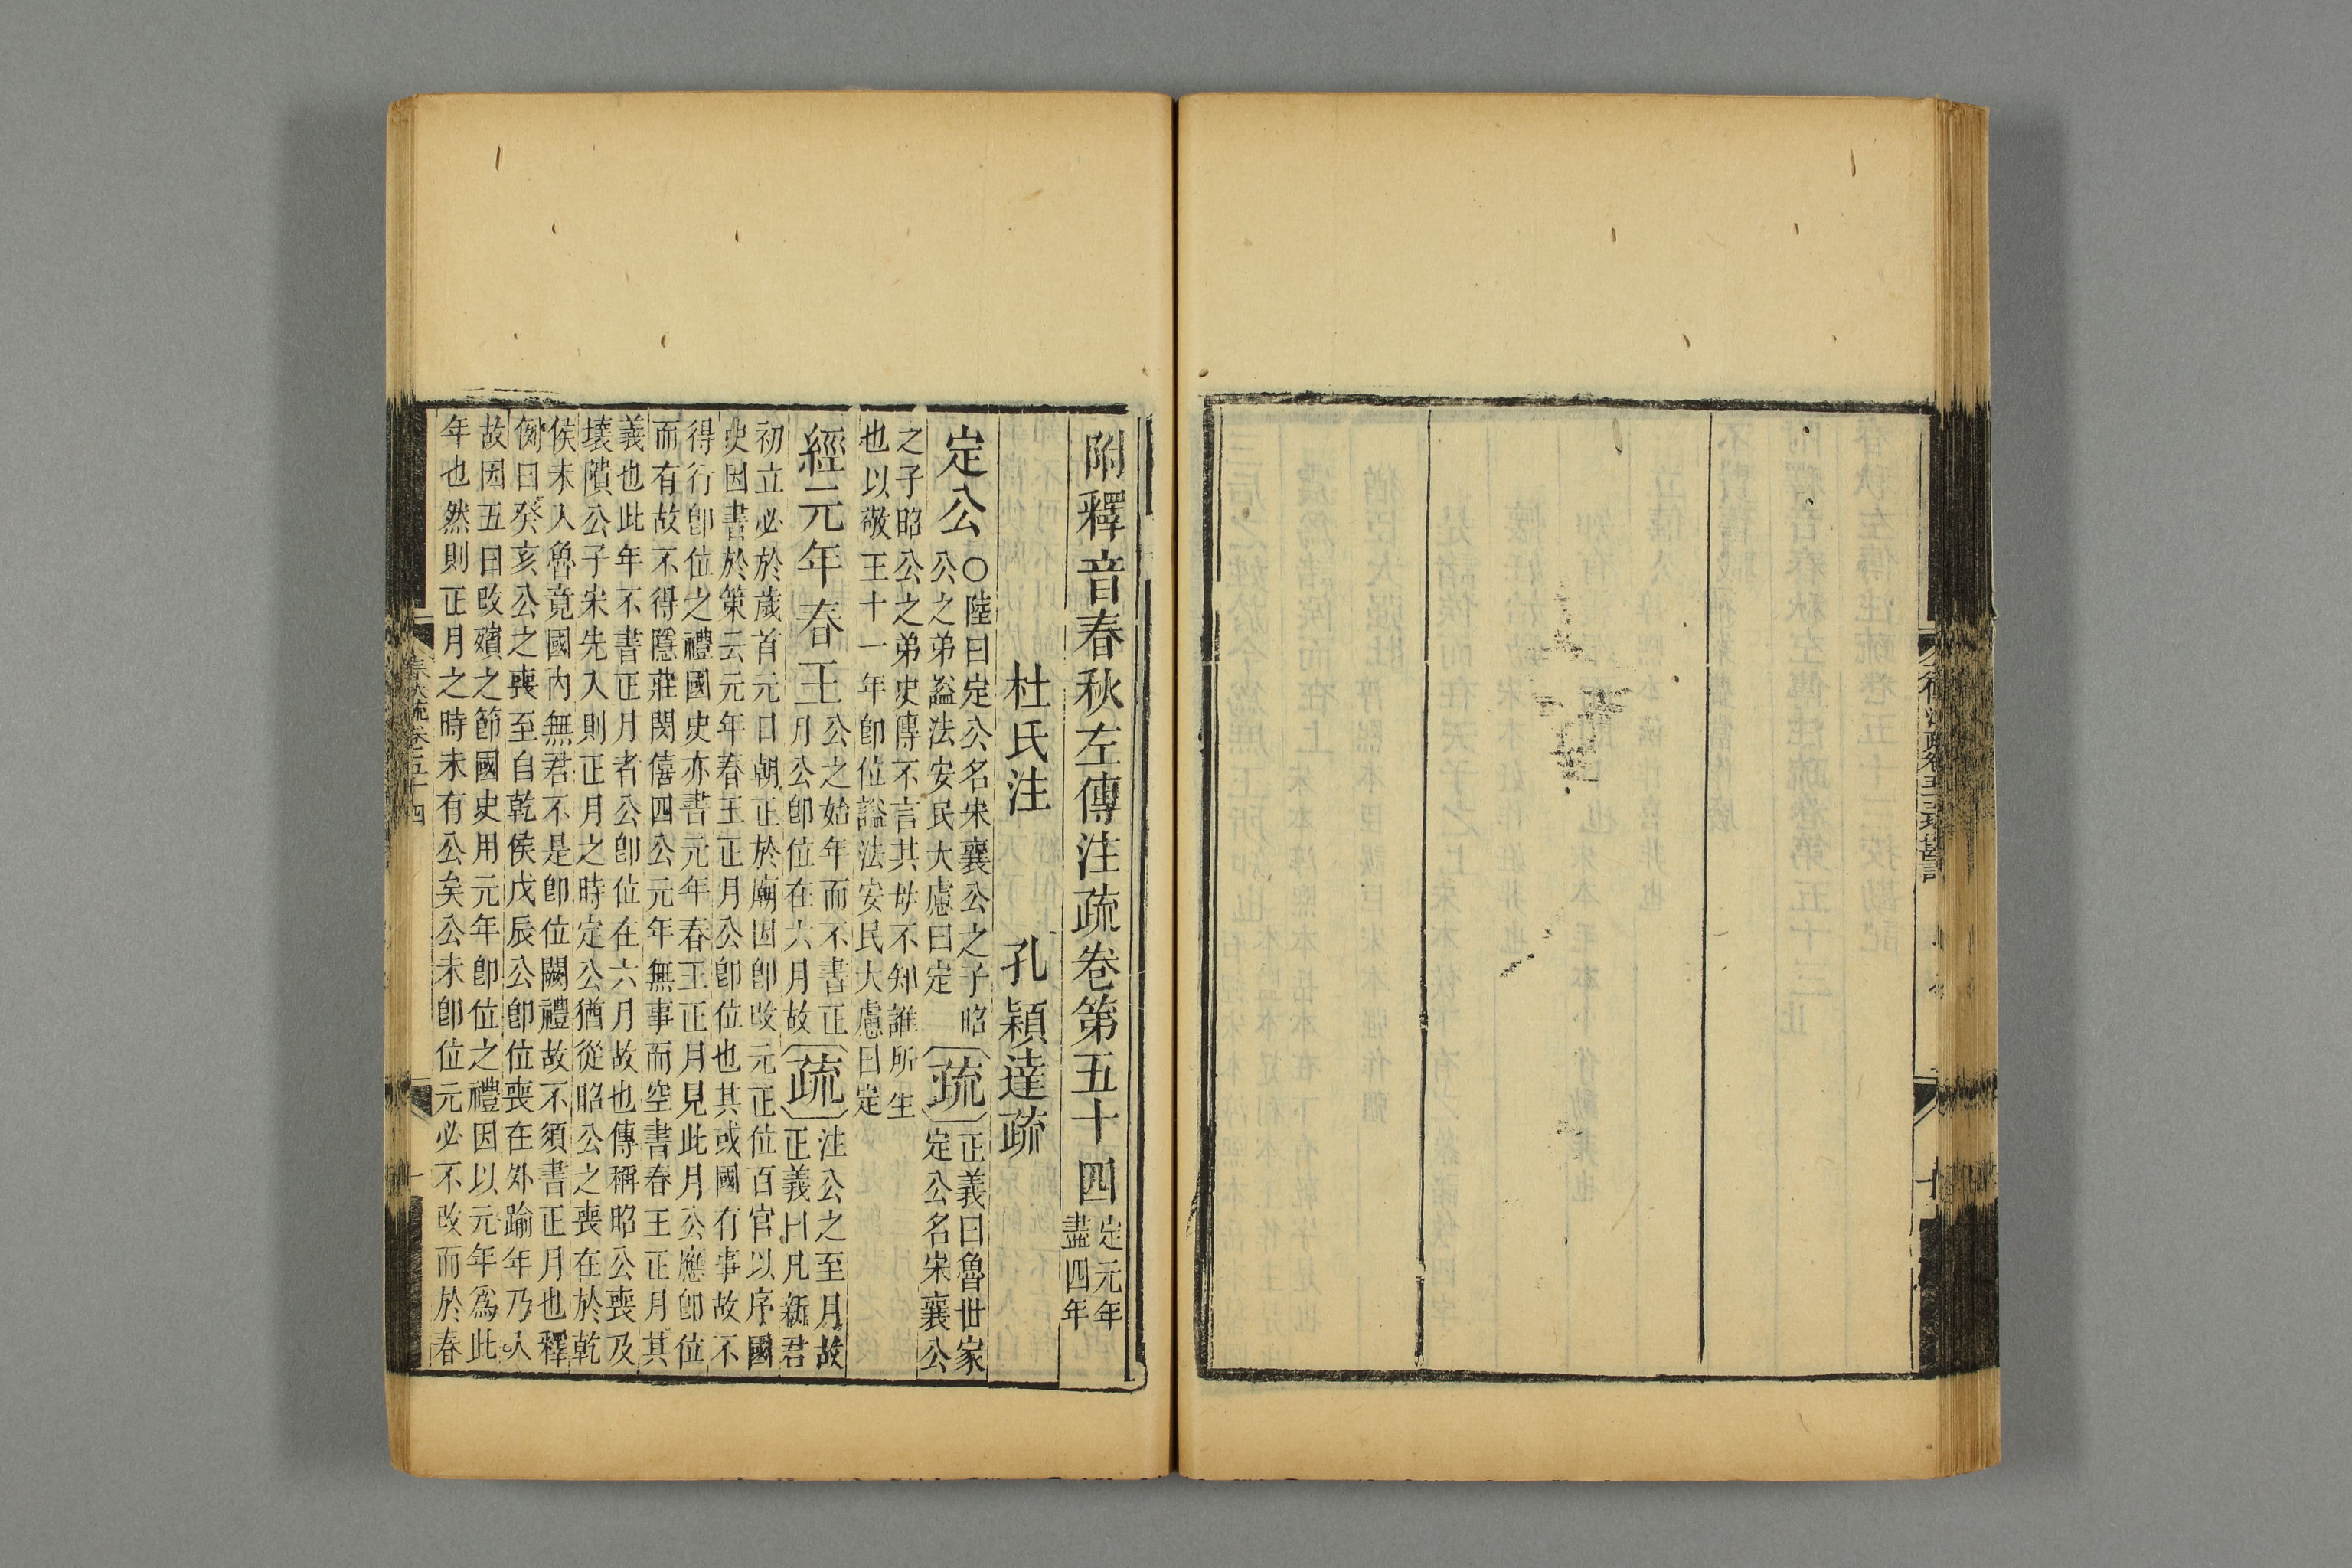 附釋音春秋左傳注疏卷第五十四
定元年
盡四年
杜氏注 孔穎達疏
定公
○陸曰定公名宋襄公之子昭
公之弟謚法安民大慮曰定
疏
正義曰魯世家
定公名宋襄公
之子昭公之弟史傳不言其母不知誰所生
也以敬王十一年卽位謚法安民大慮曰定
經元年春王
公之始年而不書正
月公卽位在六月故
疏
注公之至月故
正義曰凡新君
初立必於歲首元日朝正於廟因卽改元正位百官以序國
史因書於策云元年春王正月公卽位也其或國有事故不
得行卽位之禮國史亦書元年春王正月見此月公應卽位
而有故不得隱莊閔僖四公元年無事而空書春王正月其
義也此年不書正月者公卽位在六月故也傳稱昭公喪及
壞隤公子宋先入則正月之時定公猶從昭公之喪在於乾
侯未入魯竟國內無君不是卽位闕禮故不須書正月也釋
例曰癸亥公之喪至自乾侯戊辰公卽位喪在外踰年乃入
故因五日改殯之節國史用元年卽位之禮因以元年爲此
年也然則正月之時未有公矣公未卽位元必不改而於春